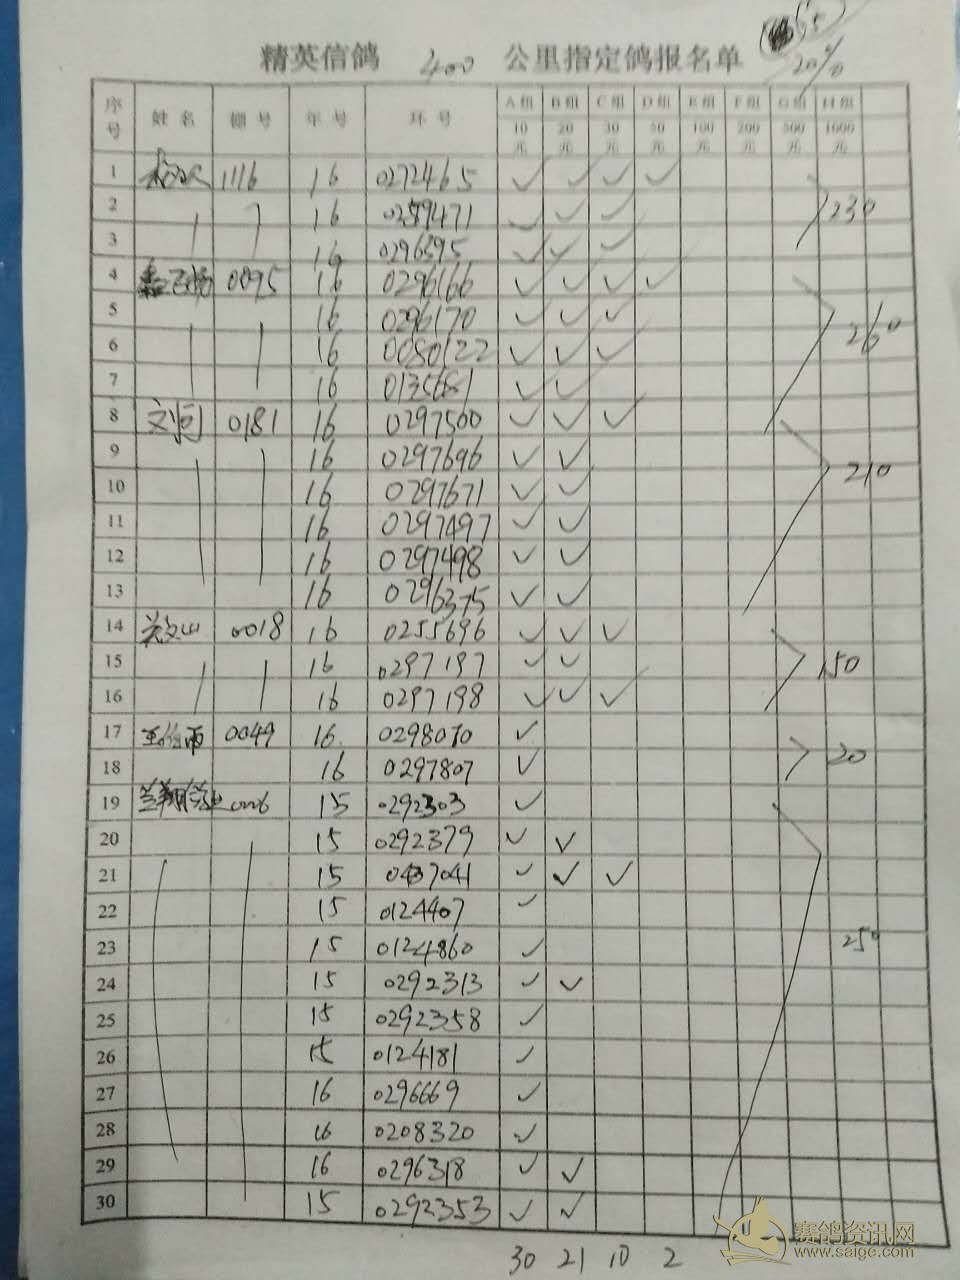 精英信鸽 400 公里指定鸽报名单
20%
序号 姓名 棚号 年号 环号 A组 B组 C组 D组 E组 F组 G组 H组
10元 20元 30元 50元 100元 200元 500元 1000元
1 1116 16 0272465 ✓ ✓ ✓ ✓
2 16 0259471 ✓ ✓ ✓ 230
3 16 0296395 ✓ ✓ ✓
4 0095 16 0296166 ✓ ✓ ✓ ✓
5 16 0296170 ✓ ✓ ✓
6 16 0080122 ✓ ✓ ✓ 260
7 16 ✓ ✓
8 0181 16 0297500 ✓ ✓ ✓
9 16 0297696 ✓ ✓
10 16 0297671 ✓ ✓ 210
11 16 0297497 ✓ ✓
12 16 0297498 ✓ ✓
13 16 0296375 ✓ ✓
14 0018 16 0255696 ✓ ✓ ✓
15 16 0297197 ✓ ✓ 150
16 16 0297198 ✓ ✓ ✓
17 0049 16 0298070 ✓
18 16 0297807 ✓ 20
19 15 0292303 ✓
20 15 0292379 ✓ ✓
21 15 ✓ ✓ ✓
22 15 0124407 ✓
23 15 0124860 ✓ 250
24 15 0292313 ✓ ✓
25 15 0292358 ✓
26 15 0124181 ✓
27 16 0296669 ✓
28 16 0208320 ✓
29 16 0296318 ✓ ✓
30 15 0292353 ✓ ✓
30 21 10 2
赛鸽资讯网
www.saige.com